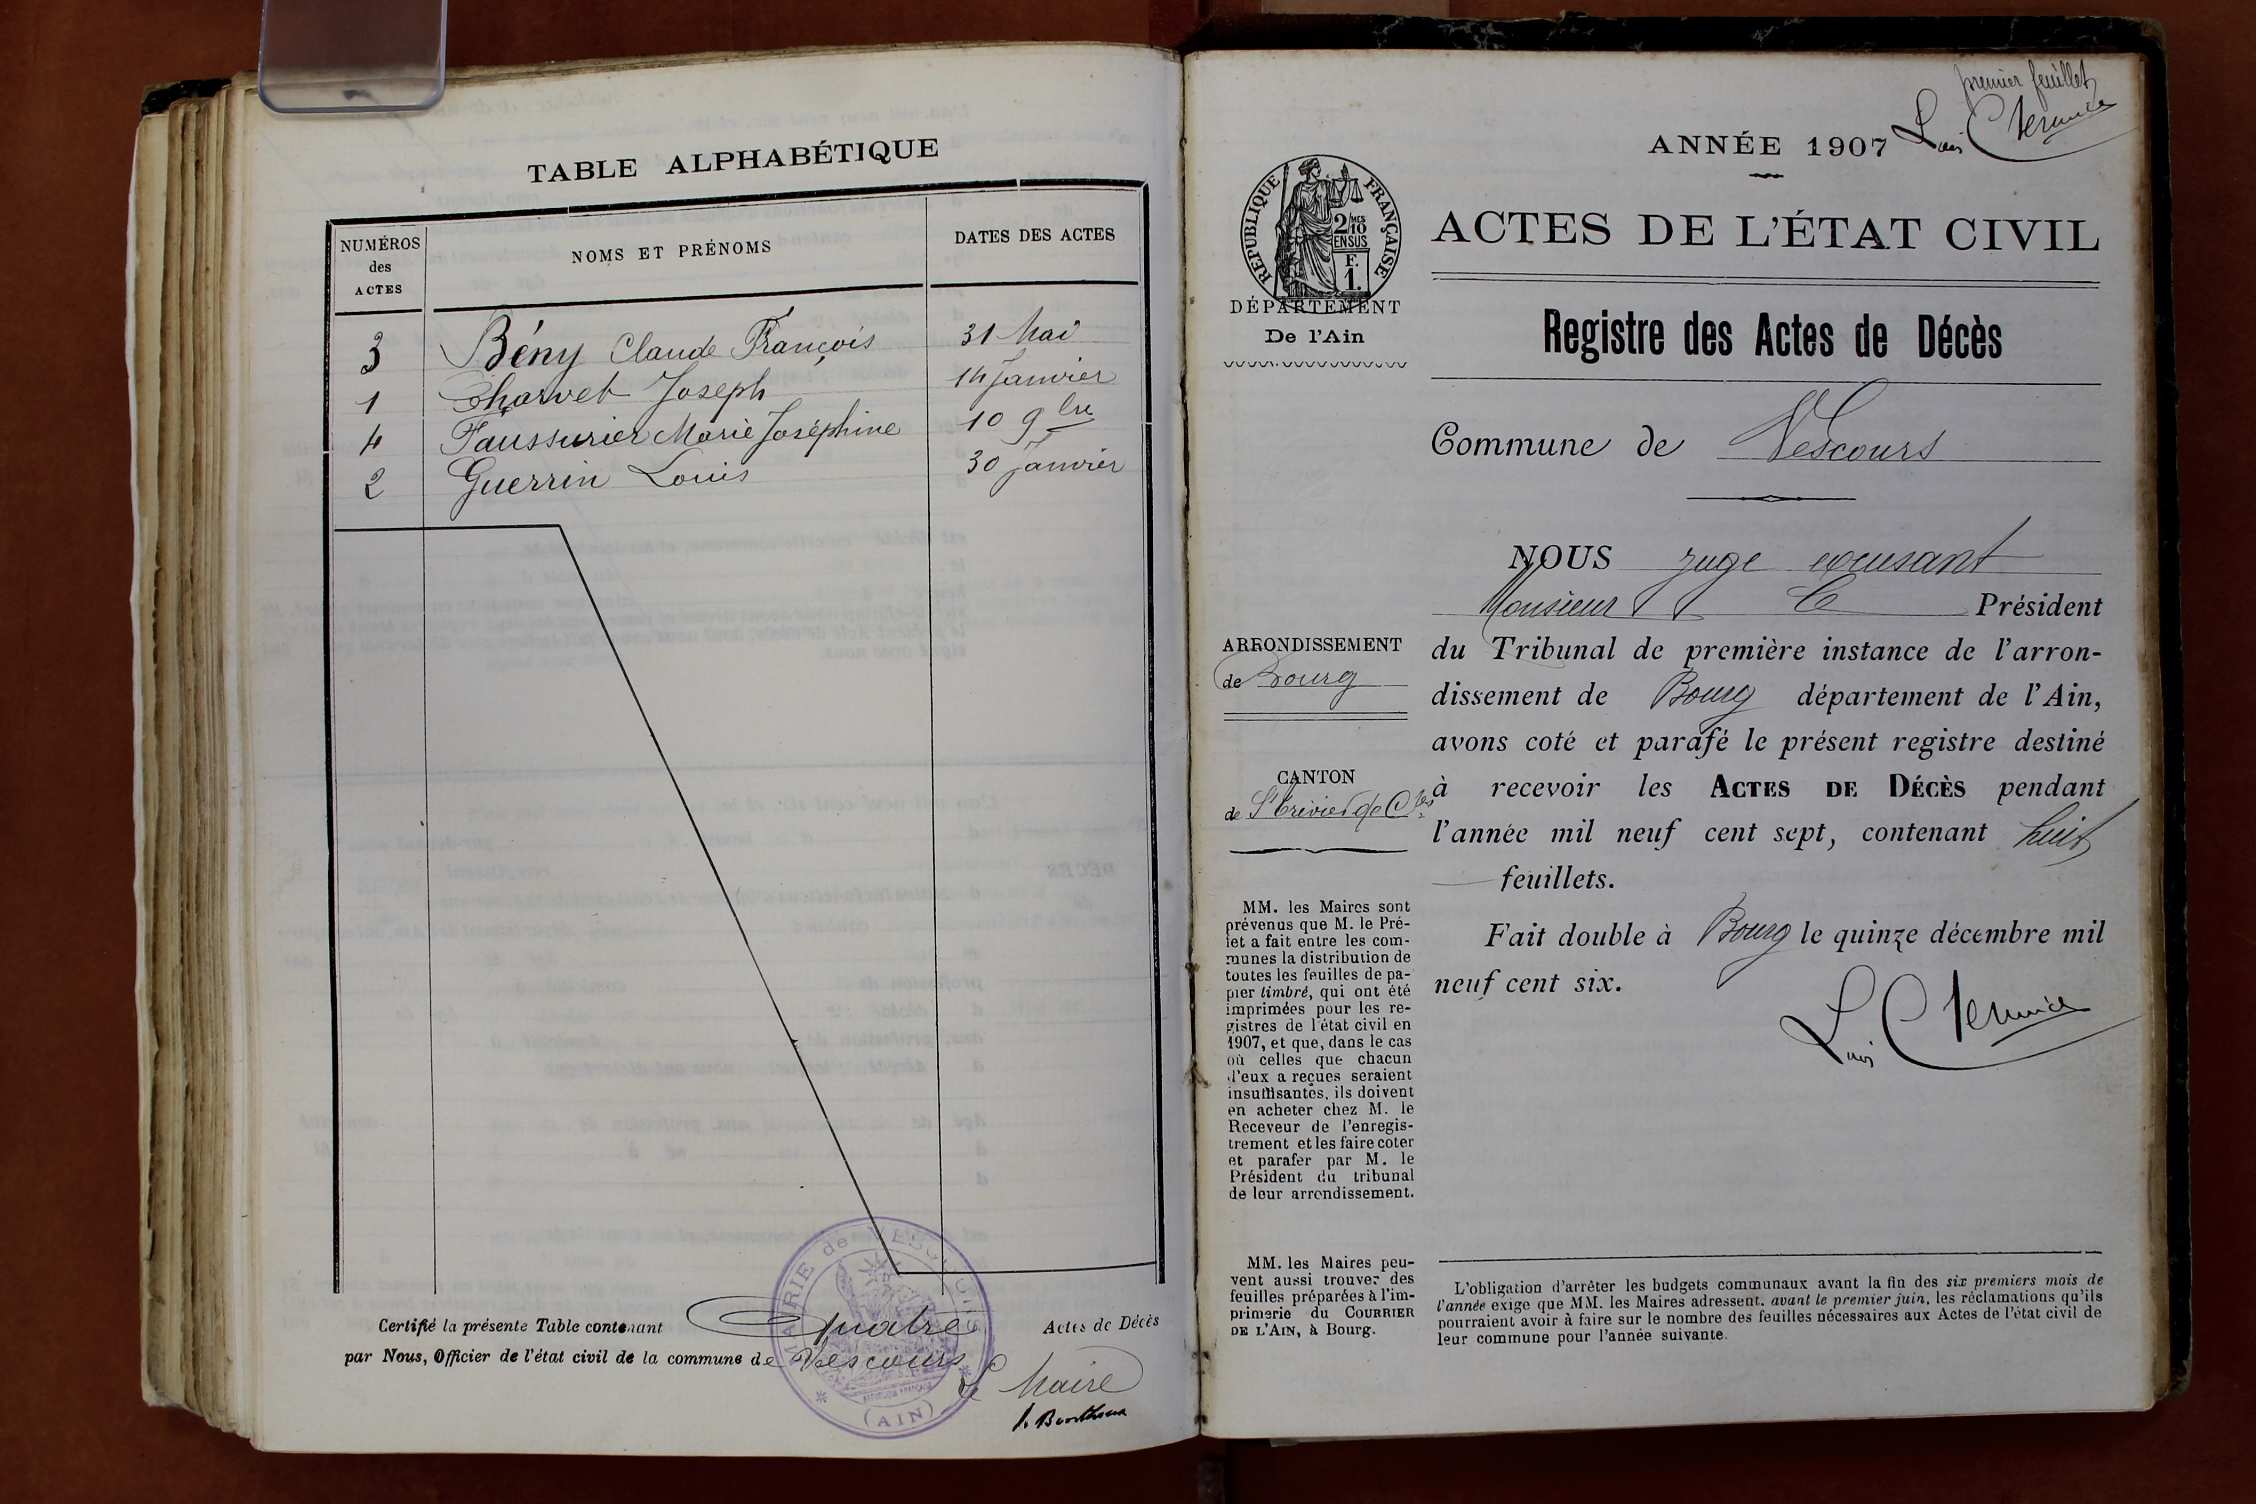 TABLE ALPHABÉTIQUE
NUMÉROS des ACTES
NOMS ET PRÉNOMS
DATES DES ACTES
3 Bény Claude François 31 Mai
1 Charvet Joseph 14 Janvier
4 Faussurier Marie Joséphine 10 9bre
2 Guerrin Louis 30 Janvier
Certifié la présente Table contenant Quatre Actes de Décès
par Nous, Officier de l'état civil de la commune de Vescours
Le Maire
MAIRIE de VESCOURS
(AIN)
premier feuillet
ANNÉE 1907
RÉPUBLIQUE FRANÇAISE
2/10 MES
EN SUS
F.
1.
DÉPARTEMENT
De l'Ain
ACTES DE L'ÉTAT CIVIL
Registre des Actes de Décès
Commune de Vescours
NOUS juge excusant
Monsieur le Président
du Tribunal de première instance de l'arron-
dissement de Bourg département de l'Ain,
avons coté et parafé le présent registre destiné
à recevoir les ACTES DE DÉCÈS pendant
l'année mil neuf cent sept, contenant huit
feuillets.
Fait double à Bourg le quinze décembre mil
neuf cent six.
ARRONDISSEMENT
de Bourg
CANTON
de St Trivier de Ctes
MM. les Maires sont
prévenus que M. le Pré-
fet a fait entre les com-
munes la distribution de
toutes les feuilles de pa-
pier timbré, qui ont été
imprimées pour les re-
gistres de l'état civil en
1907, et que, dans le cas
où celles que chacun
d'eux a reçues seraient
insuffisantes, ils doivent
en acheter chez M. le
Receveur de l'enregis-
trement et les faire coter
et parafer par M. le
Président du tribunal
de leur arrondissement.
MM. les Maires peu-
vent aussi trouver des
feuilles préparées à l'im-
primerie du COURRIER
DE L'AIN, à Bourg.
L'obligation d'arrêter les budgets communaux avant la fin des six premiers mois de
l'année exige que MM. les Maires adressent, avant le premier juin, les réclamations qu'ils
pourraient avoir à faire sur le nombre des feuilles nécessaires aux Actes de l'état civil de
leur commune pour l'année suivante.